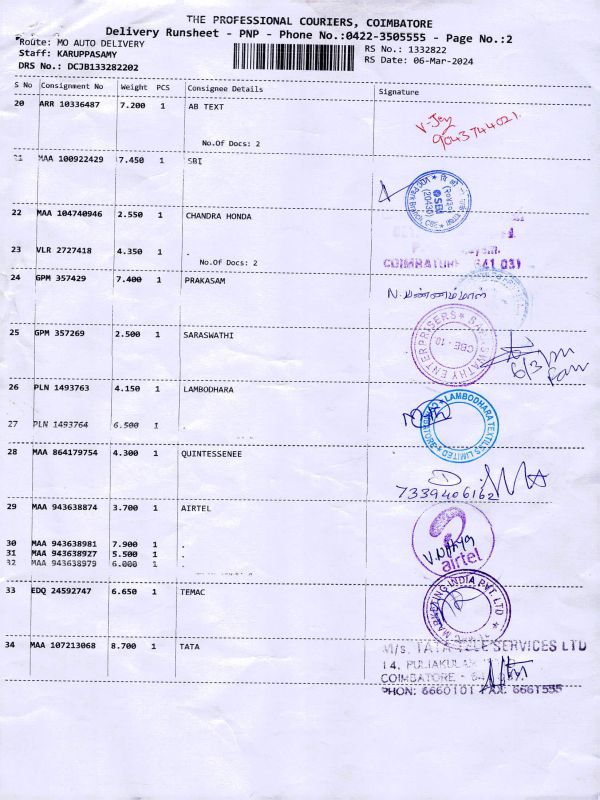 THE PROFESSIONAL COURIERS, COIMBATORE
Delivery Runsheet - PNP - Phone No.:0422-3505555 - Page No.:2
Route: MO AUTO DELIVERY
RS No.: 1332822
Staff: KARUPPASAMY
RS Date: 06-Mar-2024
DRS No.: DCJB133282202
S No Consignment No Weight PCS Consignee Details Signature
20 ARR 10336487 7.200 1 AB TEXT
No.Of Docs: 2
9043744021
MAA 100922429 7.450 1 SBI
SBI
22 MAA 104740946 2.550 1 CHANDRA HONDA
23 VLR 2727418 4.350 1 .
No.Of Docs: 2
COIMBATORE 641 031
24 GPM 357429 7.400 1 PRAKASAM
N. கண்ணம்மாள்
25 GPM 357269 2.500 1 SARASWATHI
ENTERPRISERS
CBE - 10
26 PLN 1493763 4.150 1 LAMBODHARA
LAMBODHARA TEXTILES LIMITED
27 PLN 1493764 6.500 1 .
28 MAA 864179754 4.300 1 QUINTESSENEE
7339406162
29 MAA 943638874 3.700 1 AIRTEL
30 MAA 943638981 7.900 1 .
31 MAA 943638927 5.500 1 .
32 MAA 943638979 6.000 1 .
V.Nithya
airtel
33 EDQ 24592747 6.650 1 TEMAC
MARKETING INDIA PVT. LTD
34 MAA 107213068 8.700 1 TATA
M/s. TATA TELE SERVICES LTD
14, PULIAKULAM
COIMBATORE
PHON: 6660101 FAX: 6661555